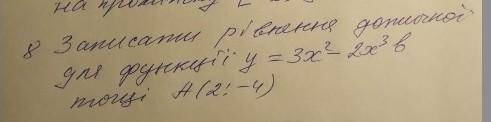 на проміжку [
8 Записати рівняння дотичної
для функції y = 3x² - 2x³ в
точці A(2; -4)